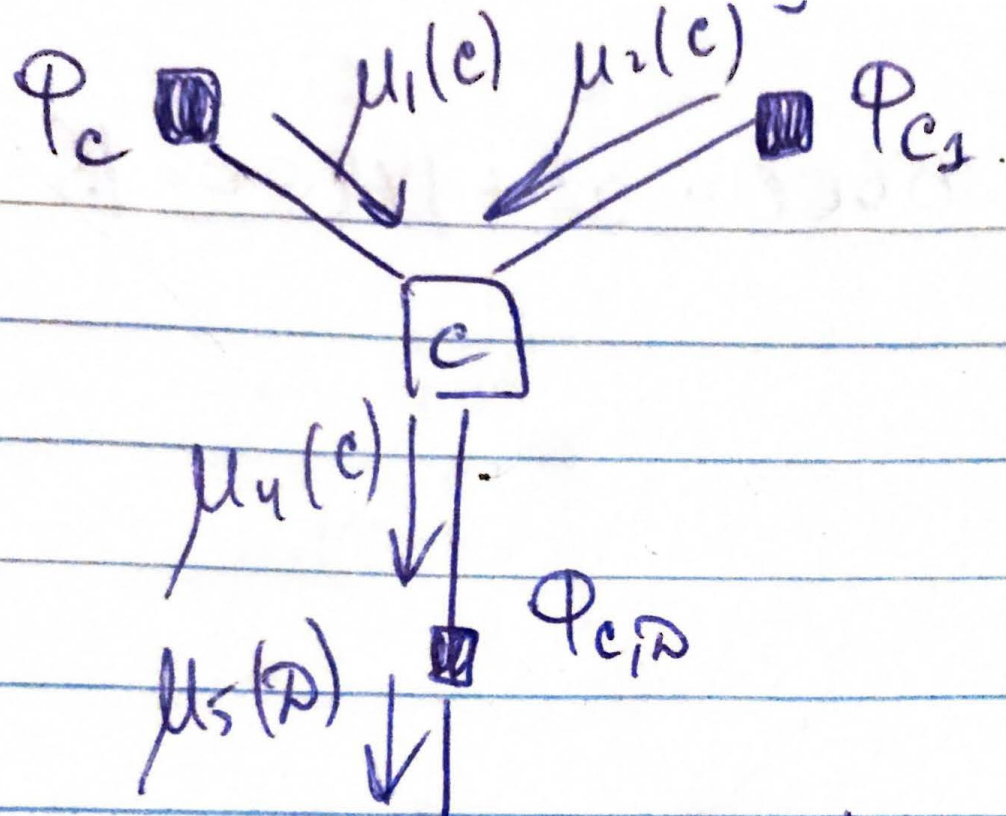 φ_C μ₁(C) μ₂(C) φ_C₁
C
μ₄(C)
φ_C,D
μ₅(D)